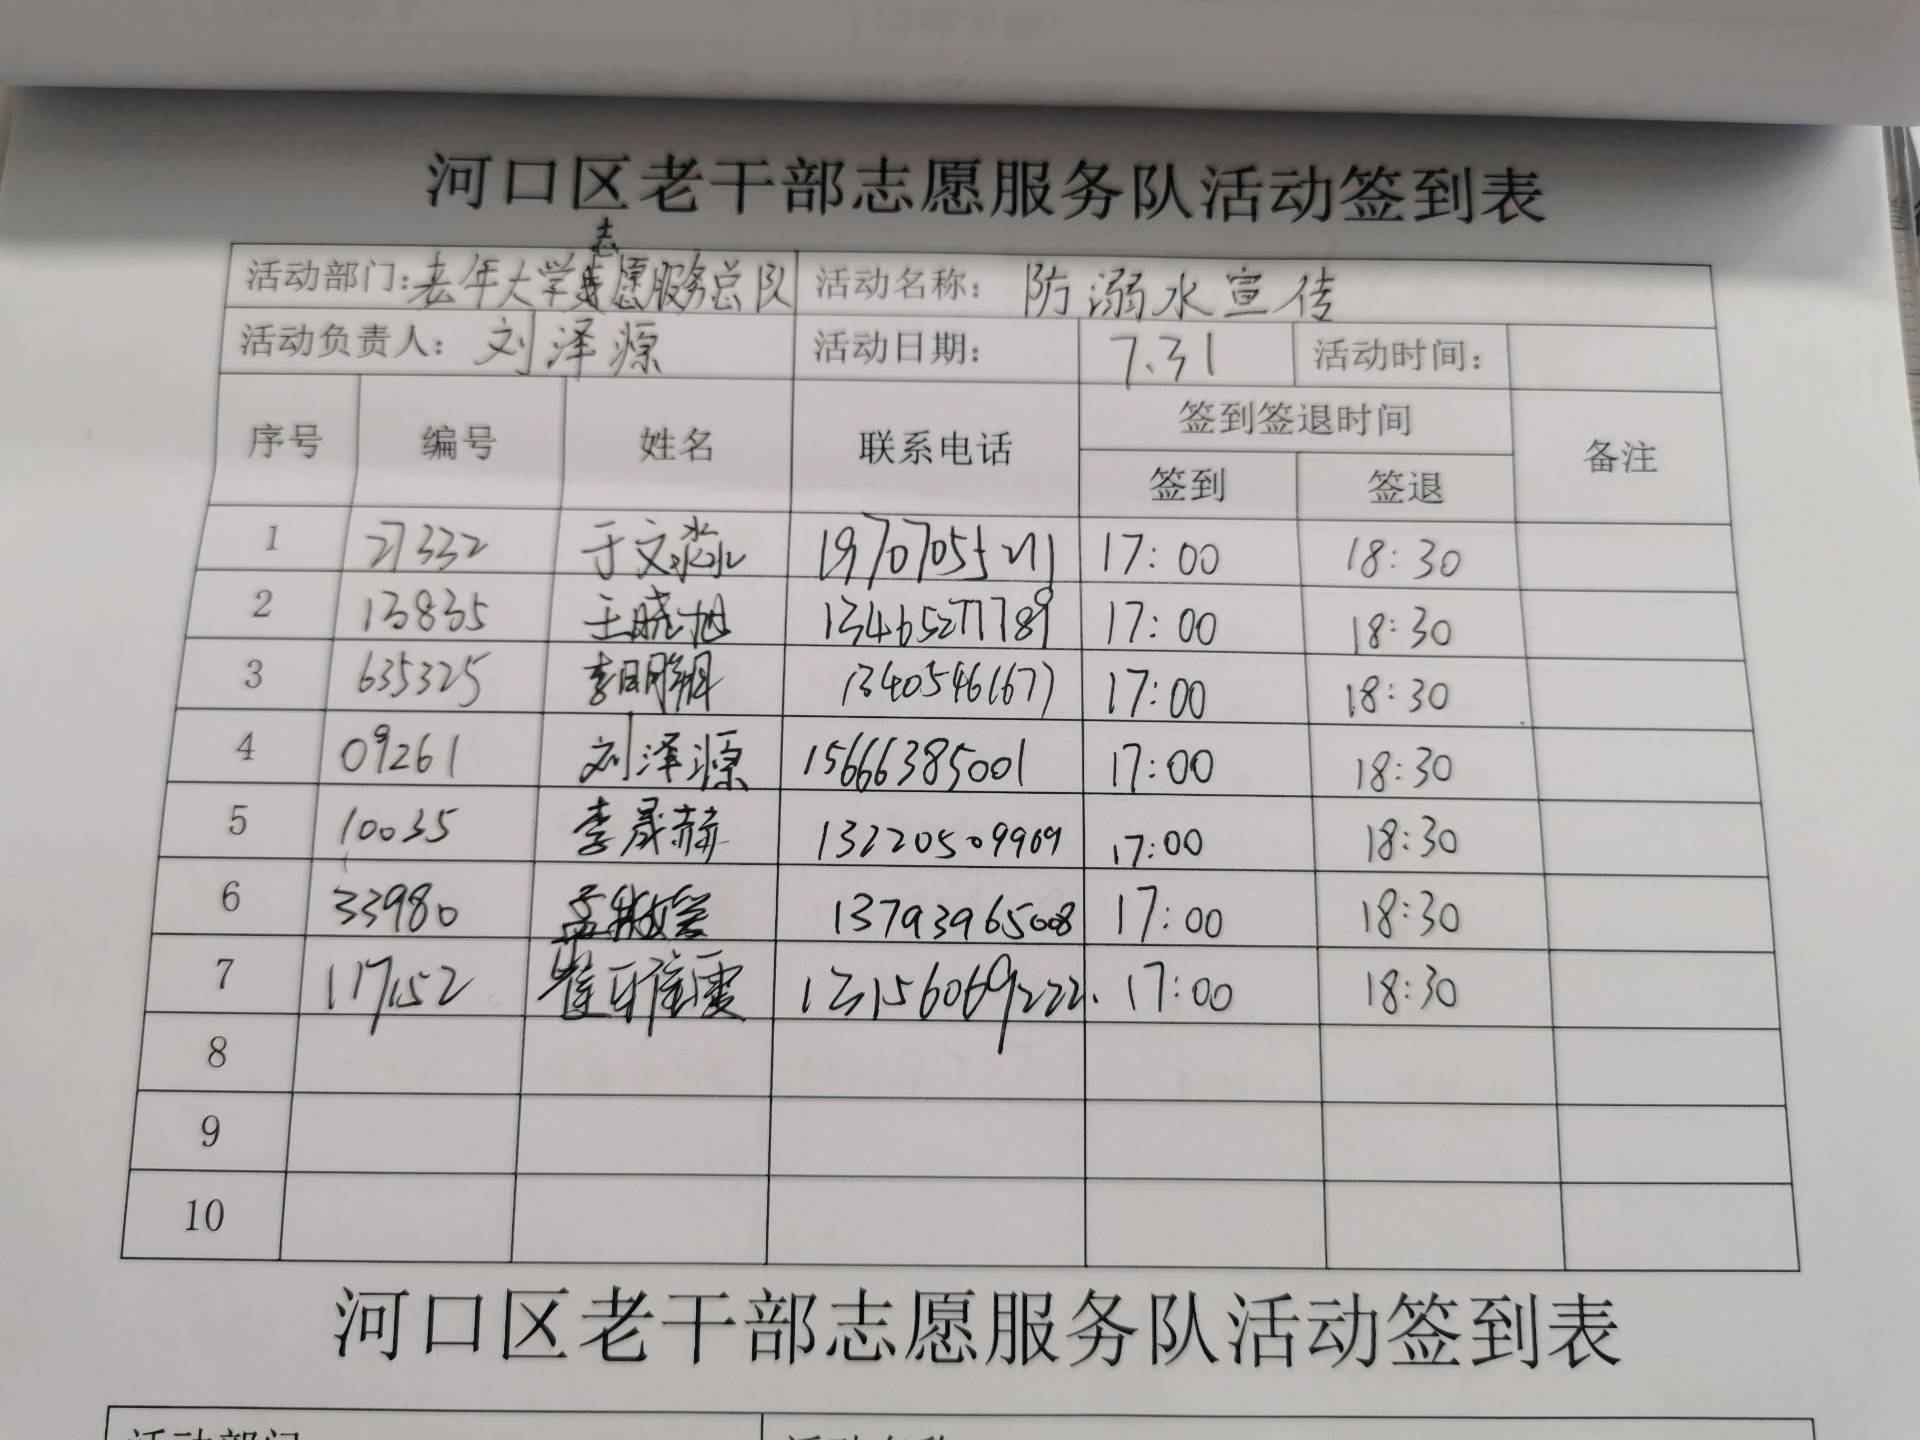 河口区老干部志愿服务队活动签到表
活动部门:老年大学志愿服务总队 活动名称: 防溺水宣传
活动负责人: 刘泽源 活动日期: 7.31 活动时间:
序号 编号 姓名 联系电话 签到签退时间 备注
签到 签退
1 27332 于文淼 17:00 18:30
2 13835 王晓旭 13465277789 17:00 18:30
3 635325 李明翰 13405461677 17:00 18:30
4 09261 刘泽源 15666385001 17:00 18:30
5 10035 李晟赫 13220509969 17:00 18:30
6 33980 13793965008 17:00 18:30
7 117152 13156069222. 17:00 18:30
8
9
10
河口区老干部志愿服务队活动签到表
活动部门 活动名称